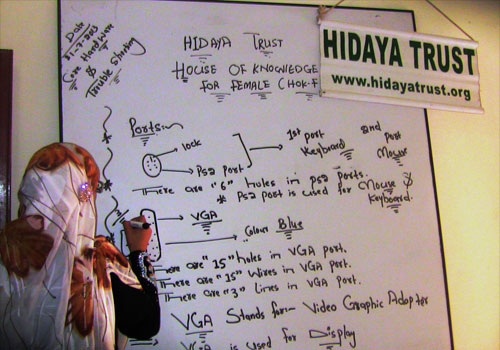 Date
Core Hardware
&
Trouble Shooting
HIDAYA TRUST
HOUSE OF KNOWLEDGE
FOR FEMALE CHOK-F
HIDAYA TRUST
www.hidayatrust.org
Ports:
lock
Ps2 port
1st port and port
Keyboard Mouse
There are "6" holes in ps2 ports.
* Ps2 port is used for Mouse &
Keyboard.
VGA
Colour Blue
There are "15" holes in VGA port.
There are "15" wires in VGA port.
There are "3" Lines in VGA port.
VGA Stands for:- Video Graphic Adopter
VGA is used for Display